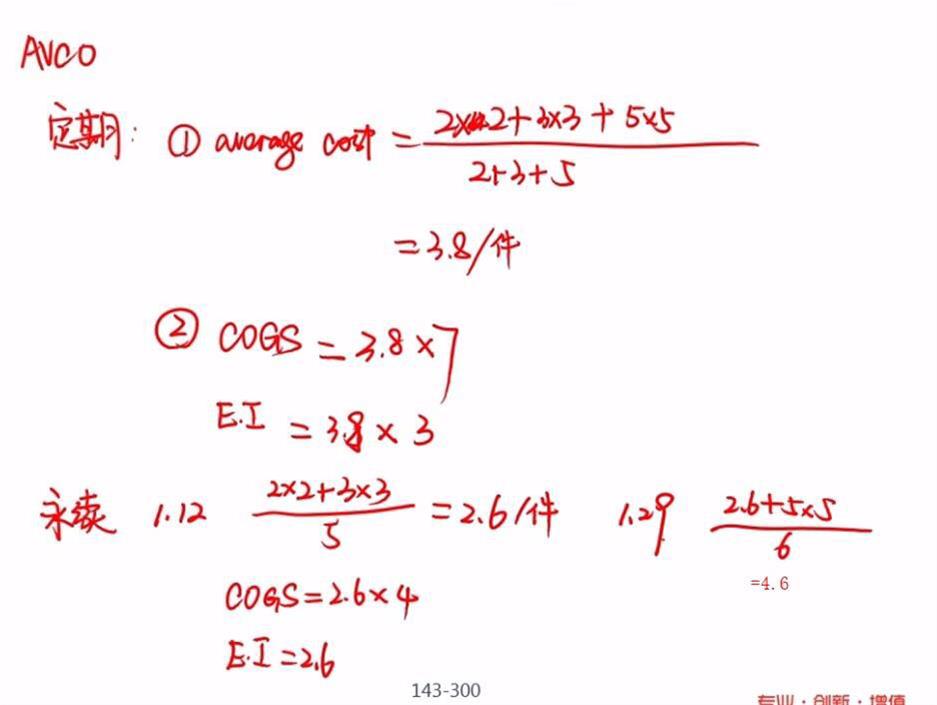 AVCO
定期: ① average cost = (2×2+3×3+5×5)/(2+3+5)
=3.8/件
② COGS = 3.8×7
E.I = 3.8×3
永续 1.12 (2×2+3×3)/5 =2.6/件 1.29 (2.6+5×5)/6
=4.6
COGS=2.6×4
E.I=2.6
143-300
专业·创新·增值